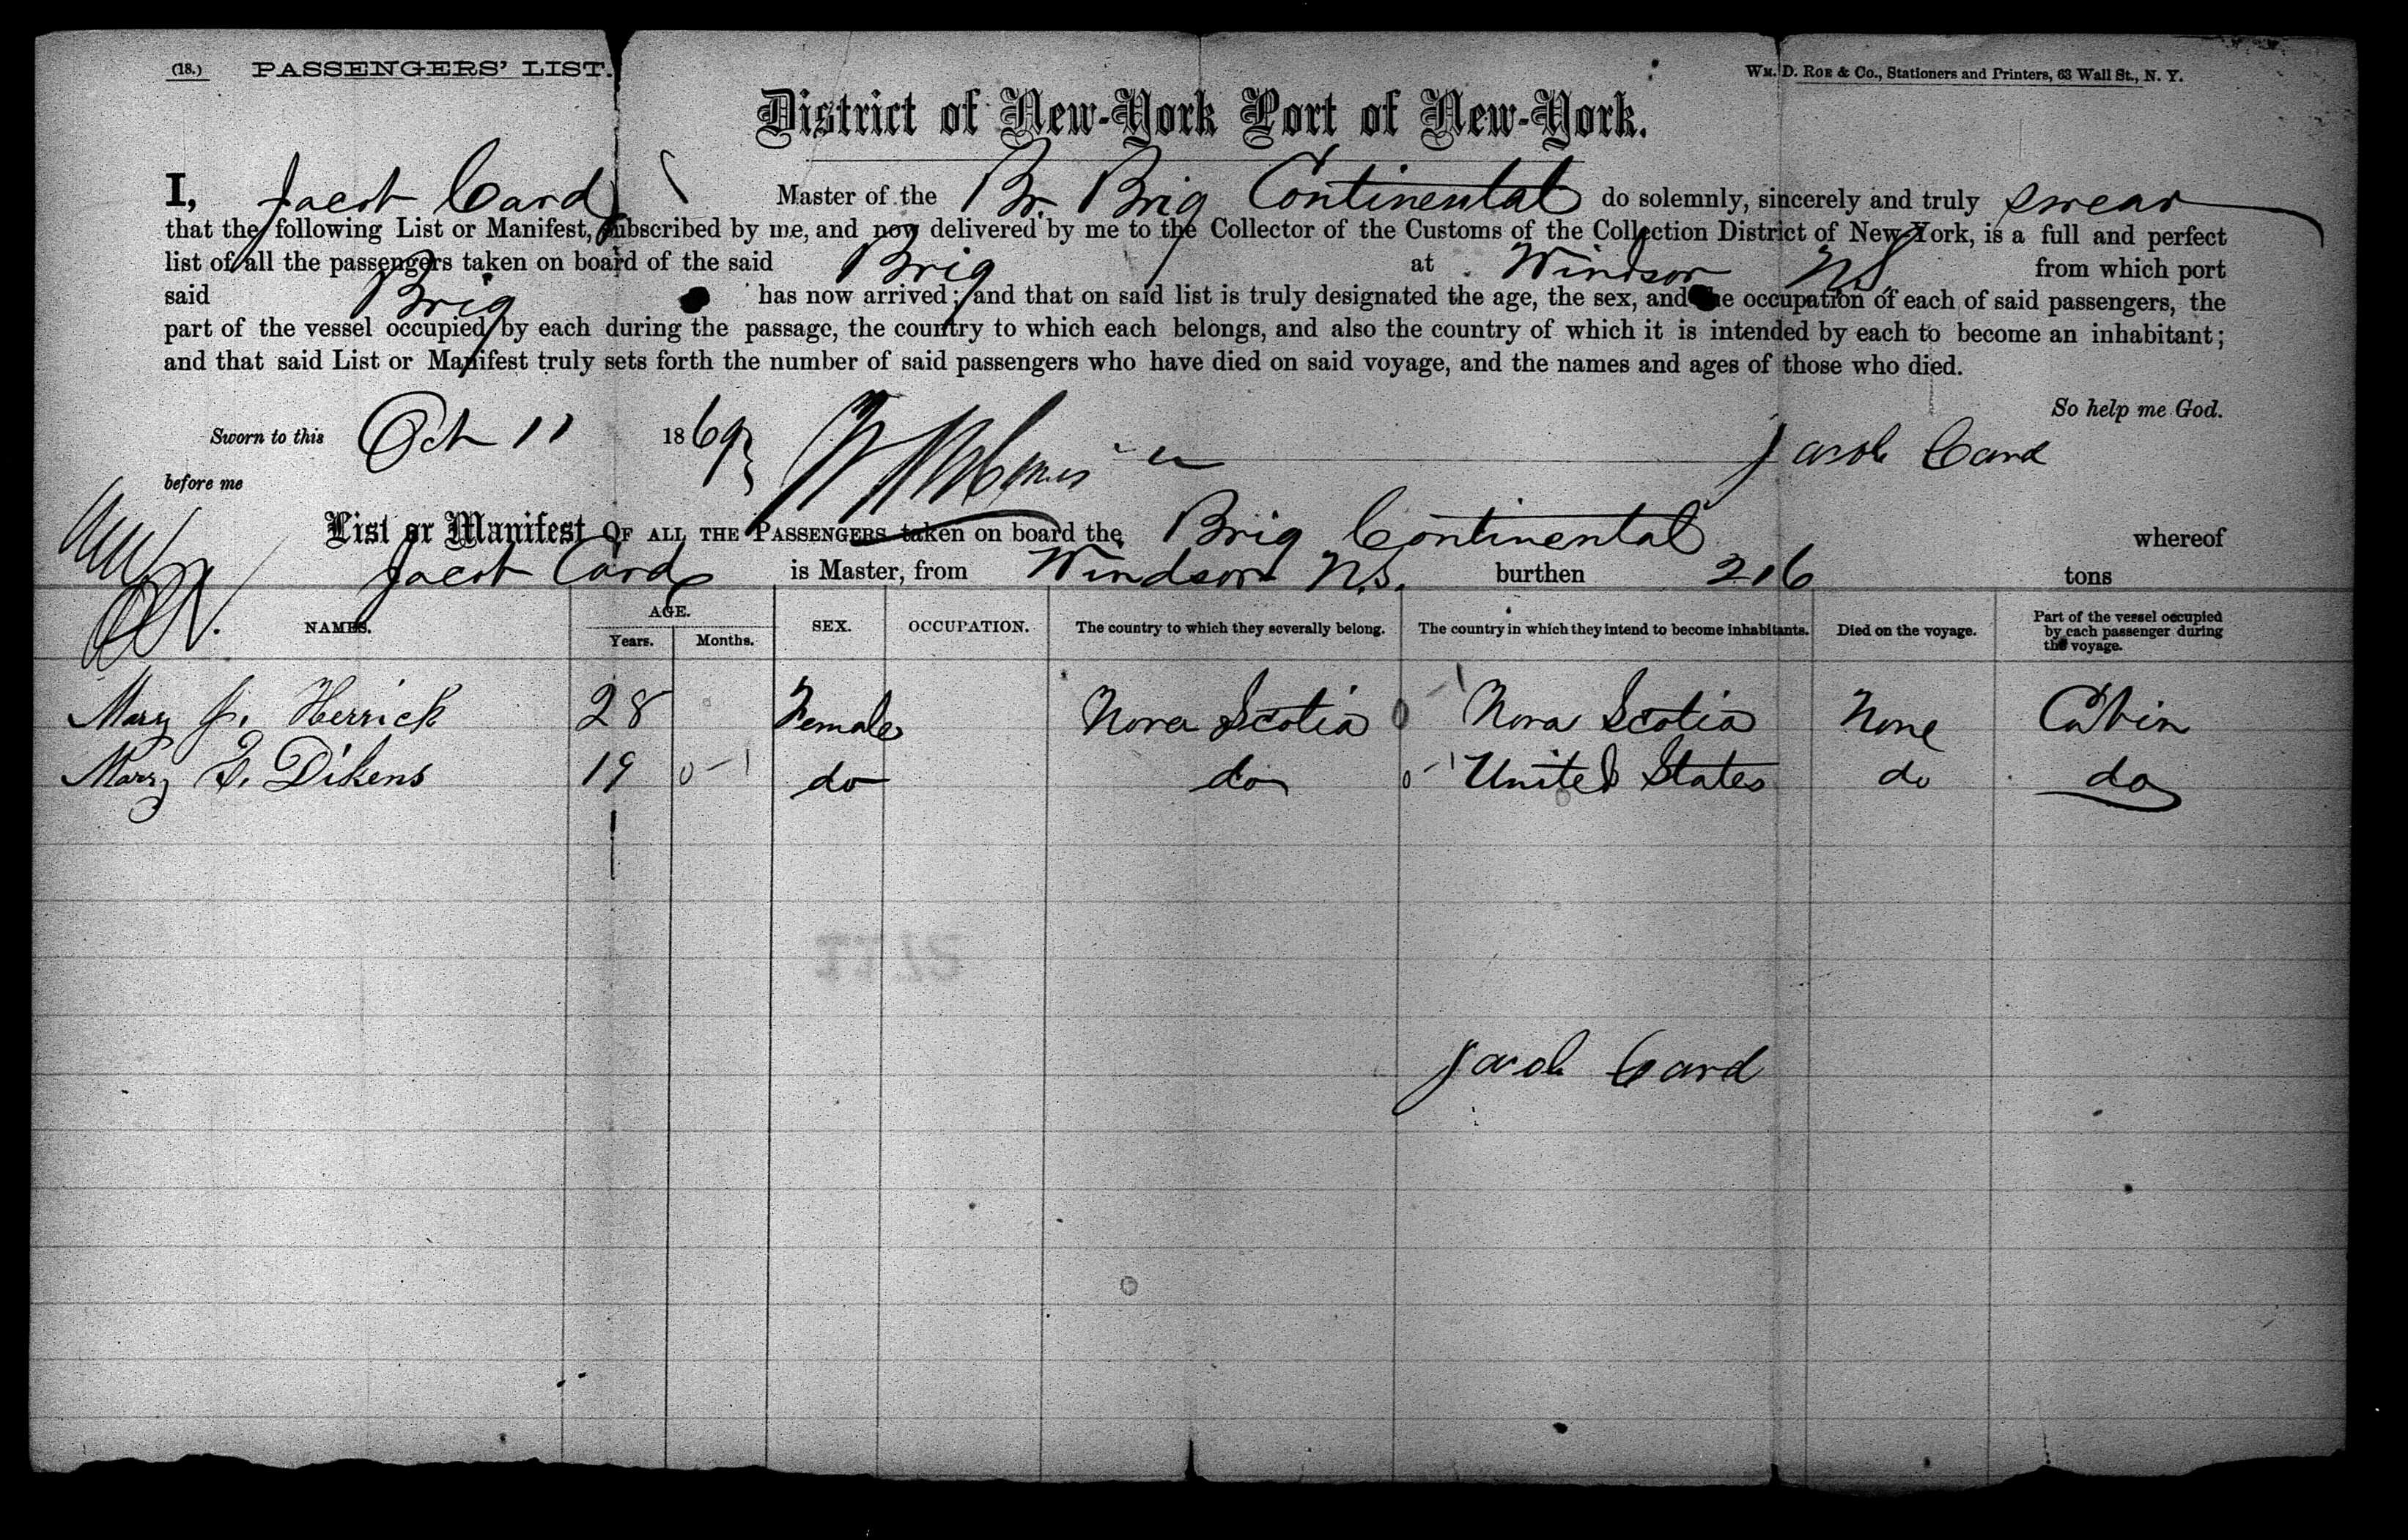 (18.) PASSENGERS' LIST.
WM. D. ROE & Co., Stationers and Printers, 63 Wall St., N. Y.
District of New-York Port of New-York.
I, Jacob Card Master of the Br. Brig Continental do solemnly, sincerely and truly swear
that the following List or Manifest, subscribed by me, and now delivered by me to the Collector of the Customs of the Collection District of New York, is a full and perfect
list of all the passengers taken on board of the said Brig at Windsor N.S. from which port
said Brig has now arrived; and that on said list is truly designated the age, the sex, and the occupation of each of said passengers, the
part of the vessel occupied by each during the passage, the country to which each belongs, and also the country of which it is intended by each to become an inhabitant;
and that said List or Manifest truly sets forth the number of said passengers who have died on said voyage, and the names and ages of those who died.
So help me God.
Sworn to this Oct 11 1869
Jacob Card
before me
List or Manifest OF ALL THE PASSENGERS taken on board the Brig Continental whereof
Jacob Card is Master, from Windsor N.S. burthen 216 tons
NAMES. AGE. Years. Months. SEX. OCCUPATION. The country to which they severally belong. The country in which they intend to become inhabitants. Died on the voyage. Part of the vessel occupied by each passenger during the voyage.
Mary J. Herrick 28 Female Nova Scotia Nova Scotia None Cabin
Mary E. Dikens 19 do do United States do do
Jacob Card